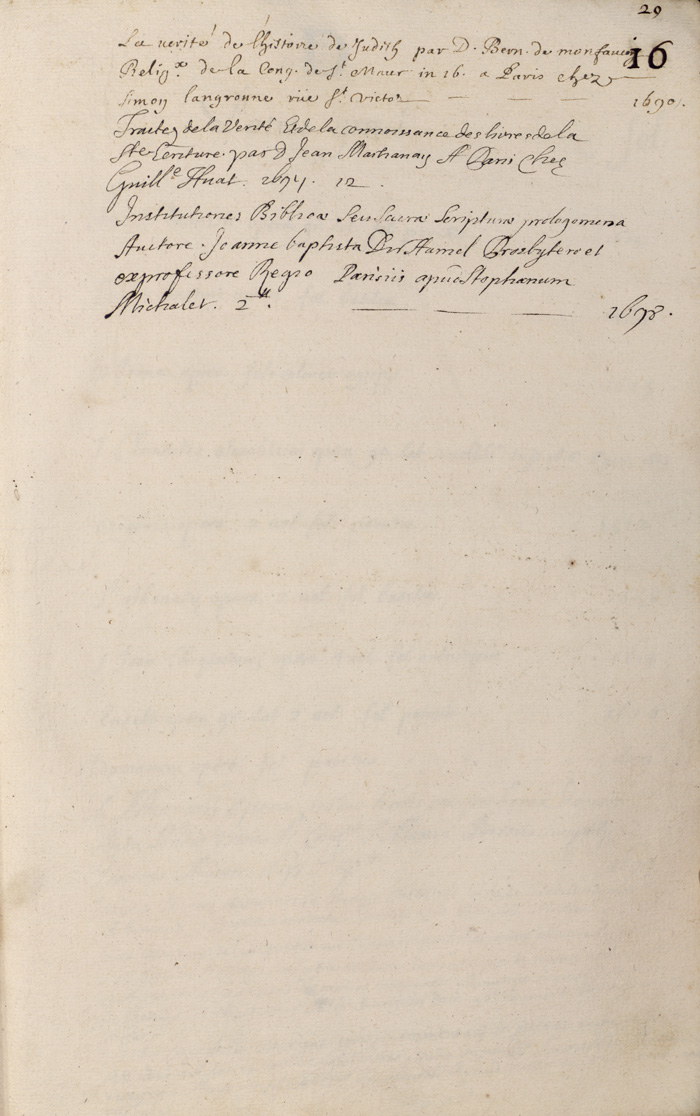 29
16
La verité de l'histoire de Judith par D. Bern. de monfaucon
Relig.x de la Cong. de St Maur in 16. a Paris chez
Simon langronne rüe St victor — — — 1690.
Traitez de la Verité Et de la connoissance des livres de la
Ste Ecriture. par D Jean Martianay A Paris Chez
Guill.e Huat. 1694. 12.
Institutiones Biblicæ Seu Sacræ Scripturæ prologomena
Auctore. Joanne baptista Du Hamel Presbytero et
exprofessore Regio Parisiis apud Stephanum
Michalet. 2 — — — 1698.